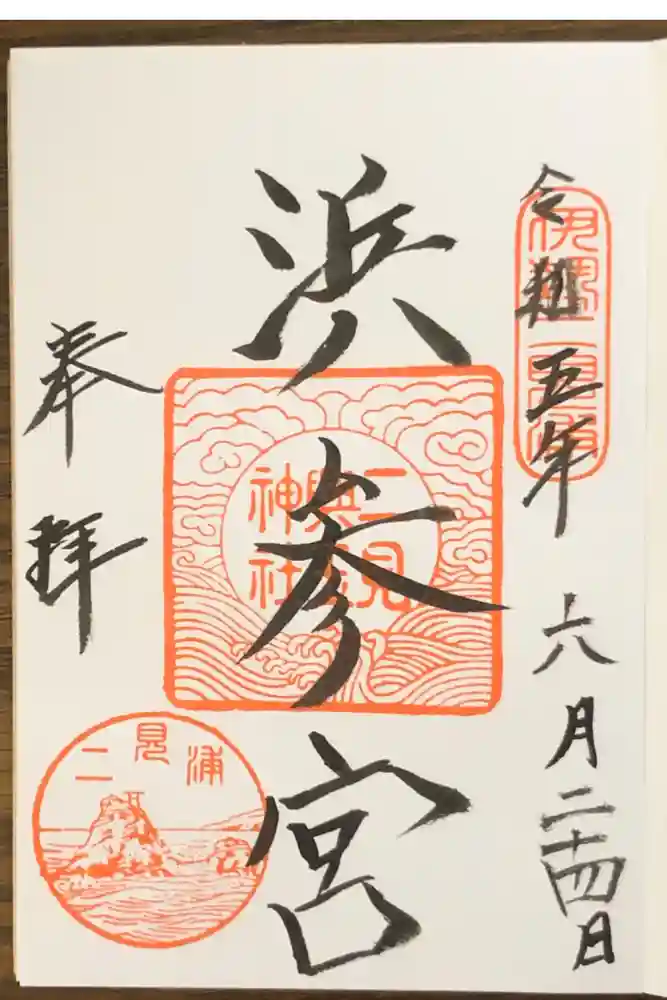 令和五年六月二十四日
伊勢二見浦
浜参宮
二見
興玉
神社
奉拝
二見浦